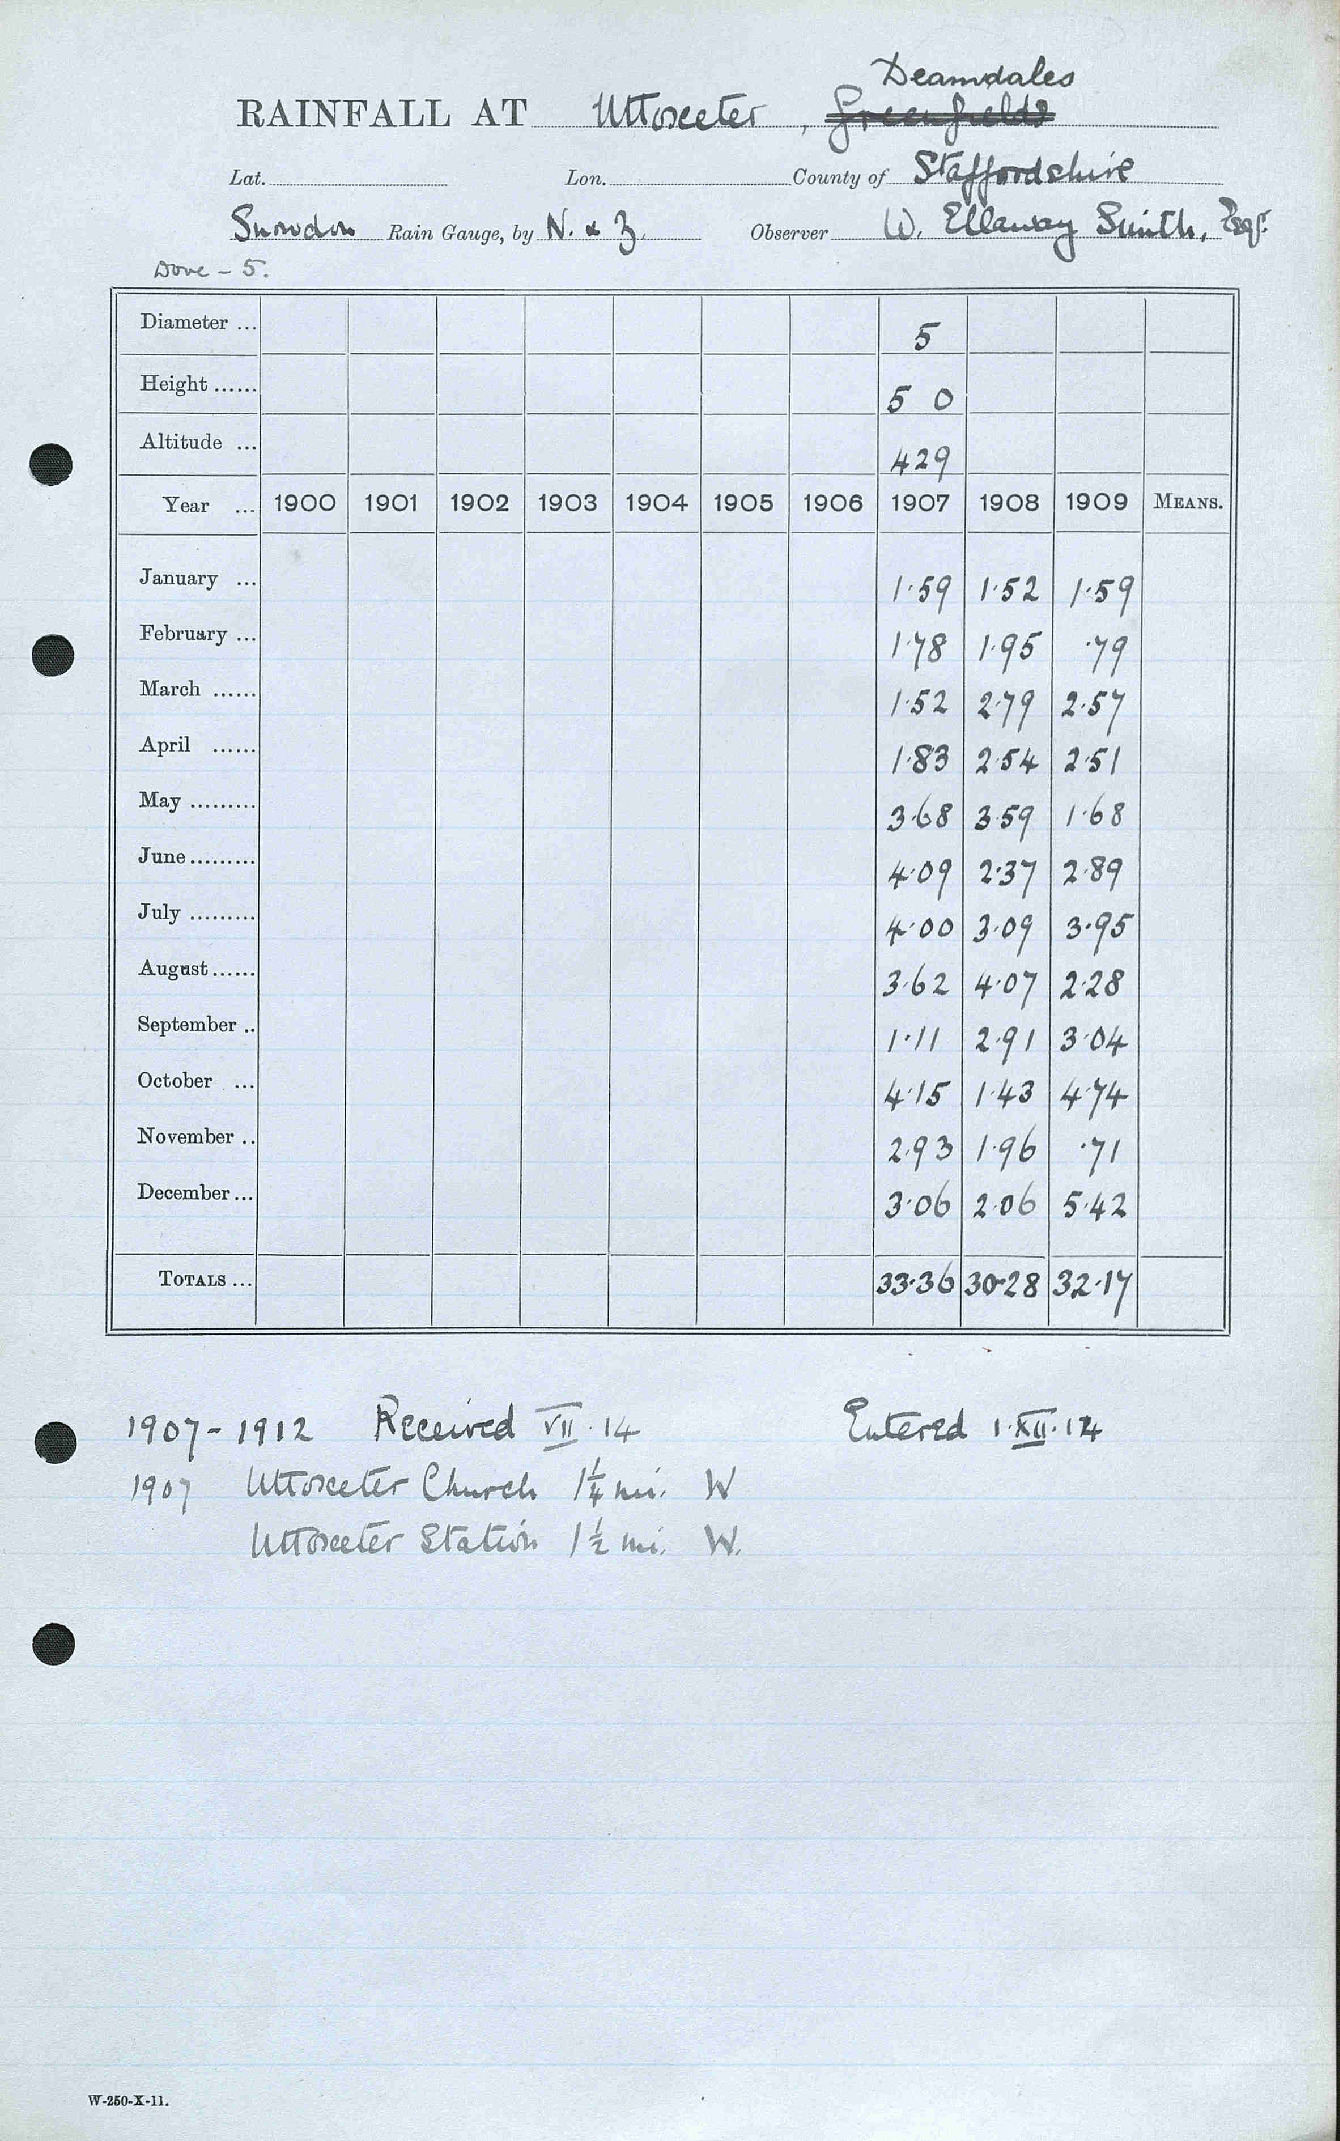 Deamdales
RAINFALL AT Uttoxeter, Greenfields
Lat. Lon. County of Staffordshire
Snowdon Rain Gauge, by N. & Z. Observer W. Ellaway Smith, Esqr.
Dove - 5.
Diameter ... 5
Height ...... 5 0
Altitude ... 429
Year ... 1900 1901 1902 1903 1904 1905 1906 1907 1908 1909 MEANS.
January ... 1·59 1·52 1·59
February ... 1·78 1·95 ·79
March ...... 1·52 2·79 2·57
April ...... 1·83 2·54 2·51
May ......... 3·68 3·59 1·68
June ......... 4·09 2·37 2·89
July ......... 4·00 3·09 3·95
August ...... 3·62 4·07 2·28
September .. 1·11 2·91 3·04
October ... 4·15 1·43 4·74
November .. 2·93 1·96 ·71
December ... 3·06 2·06 5·42
TOTALS ... 33·36 30·28 32·17
1907-1912 Received VII·14 Entered 1·XII·14
1907 Uttoxeter Church 1¼ mi. W
Uttoxeter Station 1½ mi. W.
W-250-X-11.